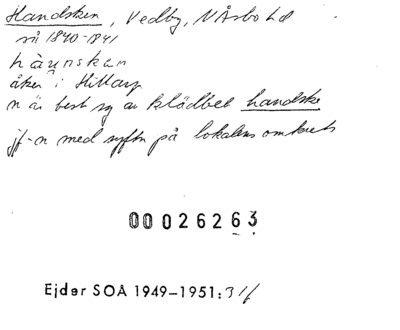 Handsken, Vedby, NÅsbo hd
sii 1840-1841
hàunskan
åker i Hittarp
n är best sg av klädbet handske
jf-n med syftn på lokalens omkrets
00026263
Ejder SOÅ 1949–1951:31f